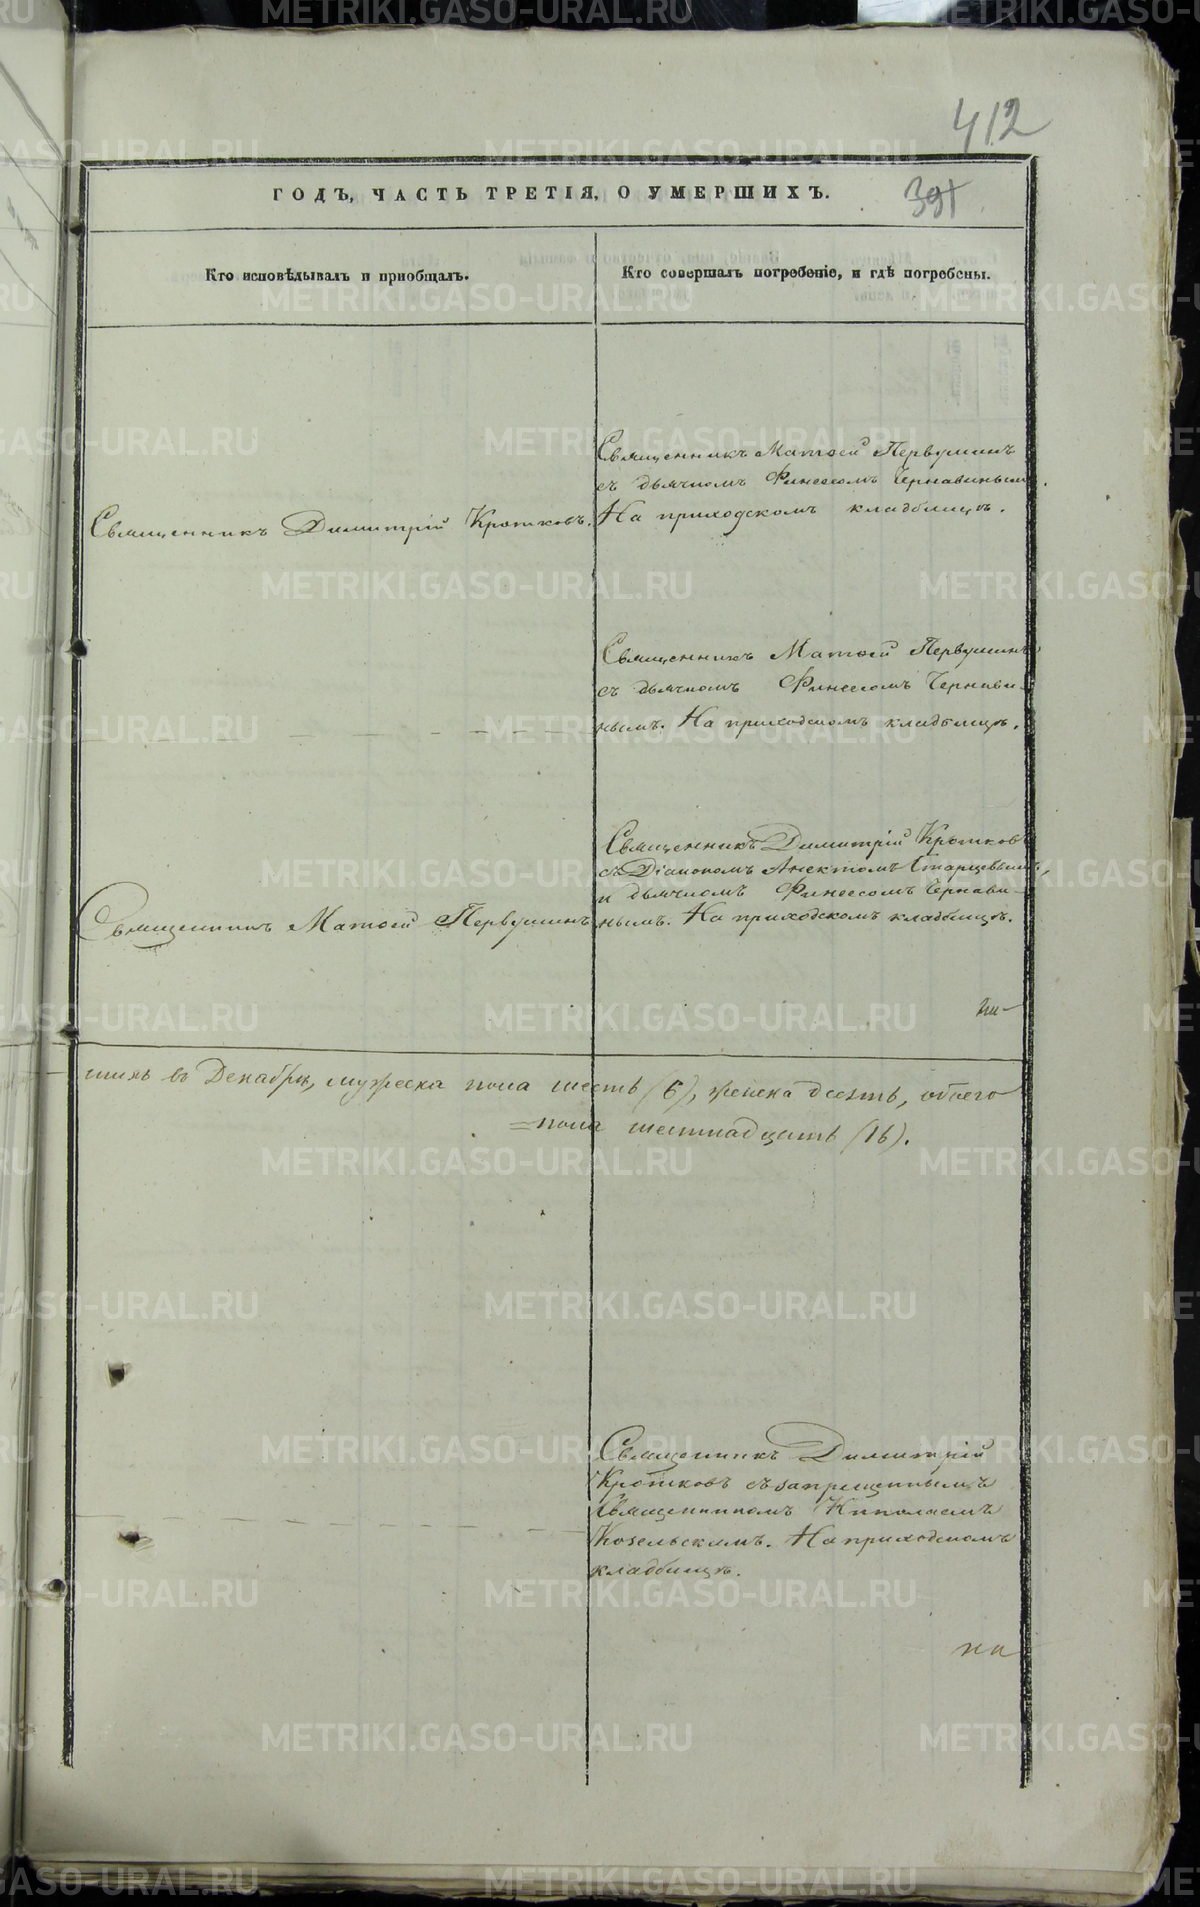 412
ГОДЪ, ЧАСТЬ ТРЕТІЯ, О УМЕРШИХЪ.
391
Кто исповѣдывалъ и пріобщалъ.
Кто совершалъ погребеніе, и гдѣ погребены.
Священникъ Матѳей Первушинъ
съ дьячкомъ Финеесомъ Чернавинымъ.
Священникъ Димитрій Кротковъ.
На приходскомъ кладбищѣ.
Священникъ Матѳей Первушинъ
съ дьячкомъ Финеесомъ Чернави-
нымъ. На приходскомъ кладбищѣ.
Священникъ Димитрій Кротковъ
съ Діакономъ Анектомъ Старцевымъ,
и дьячкомъ Финеесомъ Чернави-
Священникъ Матѳей Первушинъ
нымъ. На приходскомъ кладбищѣ.
шихъ въ Декабрѣ, мужеска пола шесть (6), женска десять, обоего
=пола шестнадцать (16).
Священникъ Димитрій
Кротковъ съ запрещеннымъ
Священникомъ Николаемъ
Козельскимъ. На приходскомъ
кладбищѣ.
METRIKI.GASO-URAL.RU